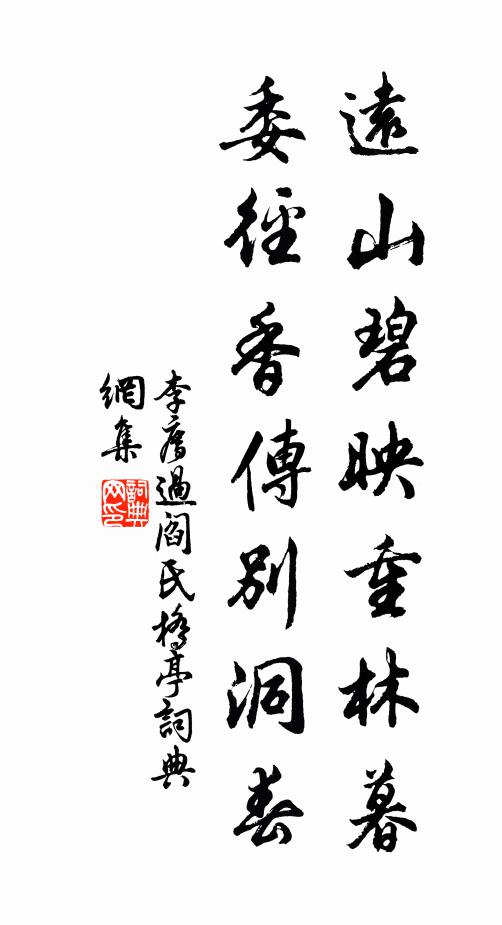 遠山碧映重林暮
委徑香傳別洞春
李廌過閻氏橋亭詞典
網集
詞典
网印